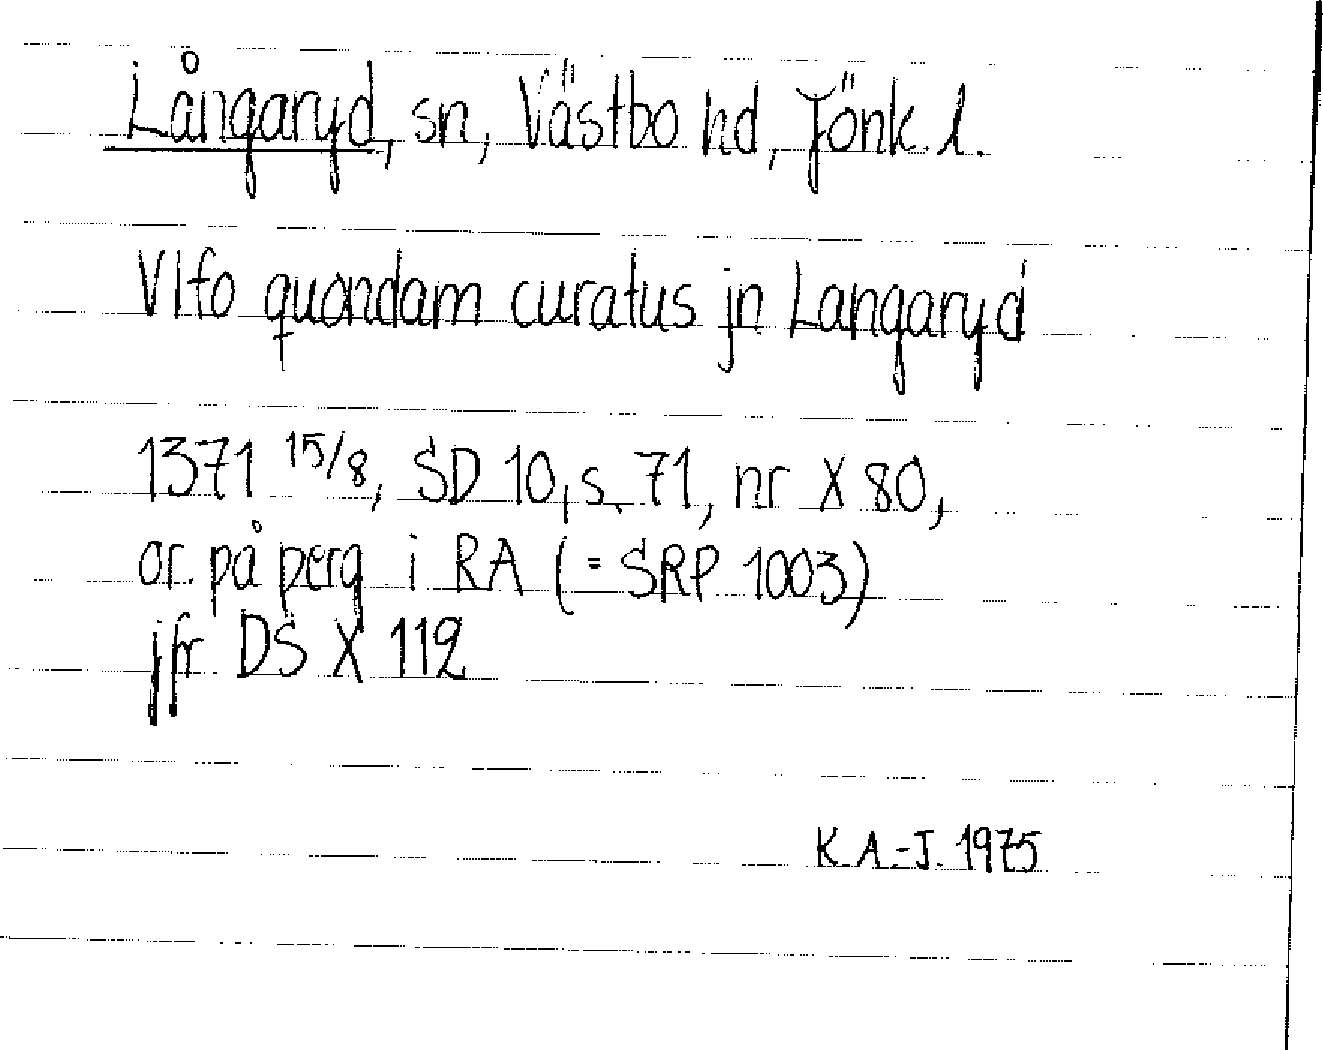 Långaryd, sn, Västbo hd, Jönk. l.
Vlfo quondam curatus jn Langaryd
1371 15/8, SD 10, s. 71, nr X 80,
or. på perg i RA (= SRP 1003)
jfr DS X 112
K A.-J. 1975